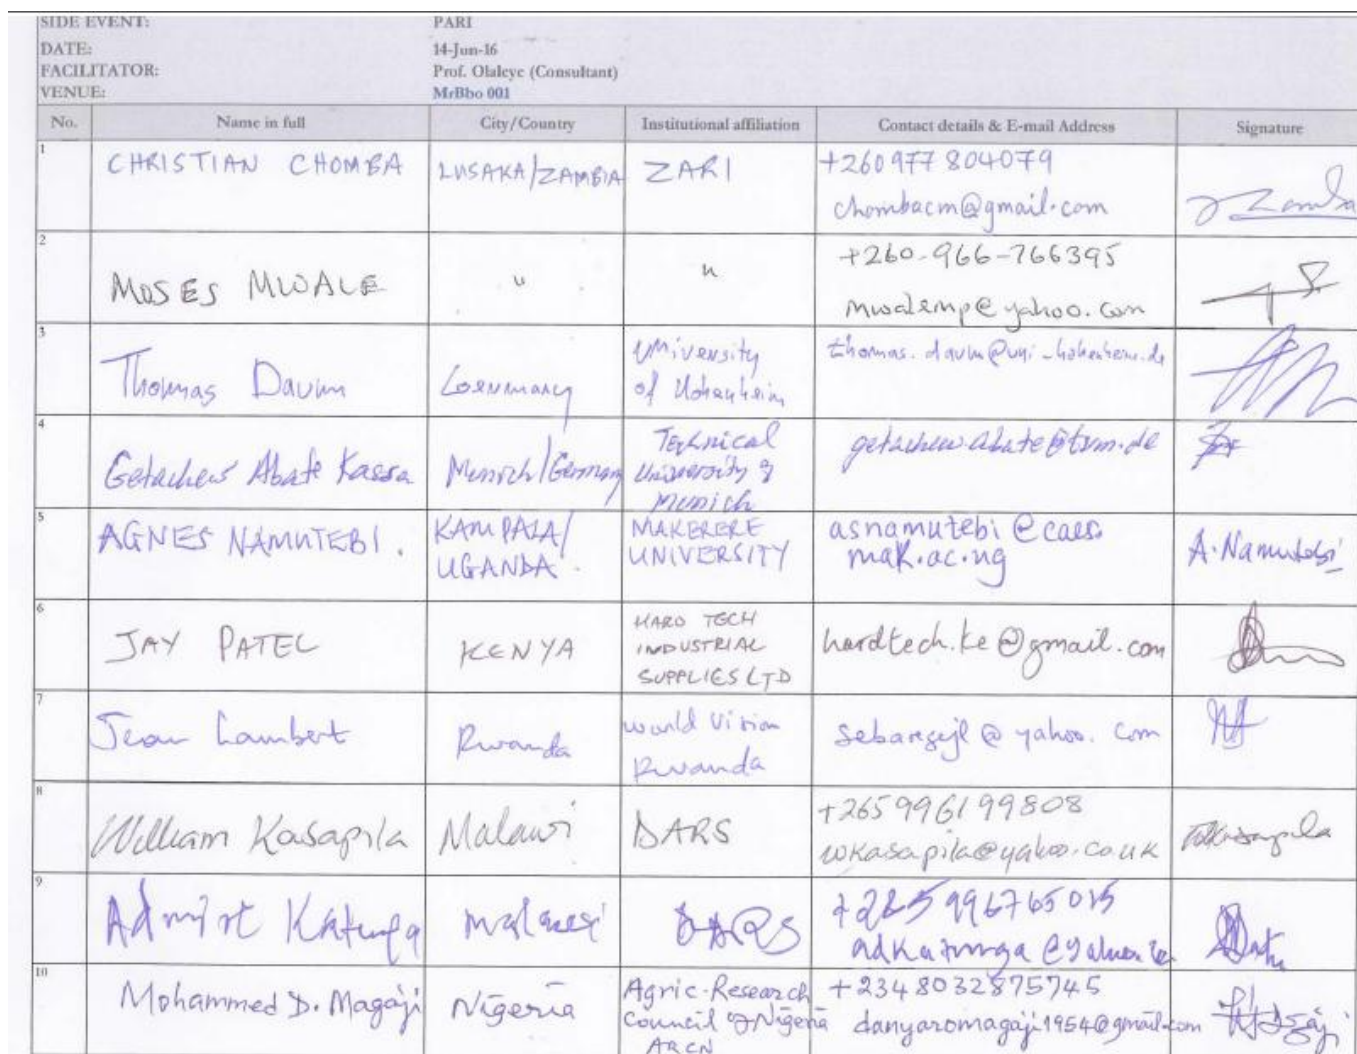 SIDE EVENT: PARI
DATE: 14-Jun-16
FACILITATOR: Prof. Olaleye (Consultant)
VENUE: MrBbo 001
No. Name in full City/Country Institutional affiliation Contact details & E-mail Address Signature
1 CHRISTIAN CHOMBA LUSAKA/ZAMBIA ZARI +260977804079
chombacm@gmail.com
2 MOSES MWALE " " +260-966-766395
mwalemp@yahoo.com
3 Thomas Daum Germany University of Hohenheim thomas.daum@uni-hohenheim.de
4 Getachew Abate Kassa Munich/Germany Technical University of Munich getachew.abate@tum.de
5 AGNES NAMUTEBI. KAMPALA/UGANDA. MAKERERE UNIVERSITY asnamutebi@caes.
mak.ac.ug A.Namutebi
6 JAY PATEL KENYA HARD TECH INDUSTRIAL SUPPLIES LTD hardtech.ke@gmail.com
7 Jean Lambert Rwanda World Vision Rwanda @yahoo.com
8 William Kasapila Malawi DARS +265996199808
wkasapila@yahoo.co.uk
9 Admire Katunga Malawi DARS
10 Mohammed D. Magaji Nigeria Agric-Research Council of Nigeria ARCN +2348032875745
danyaromagaji1954@gmail.com